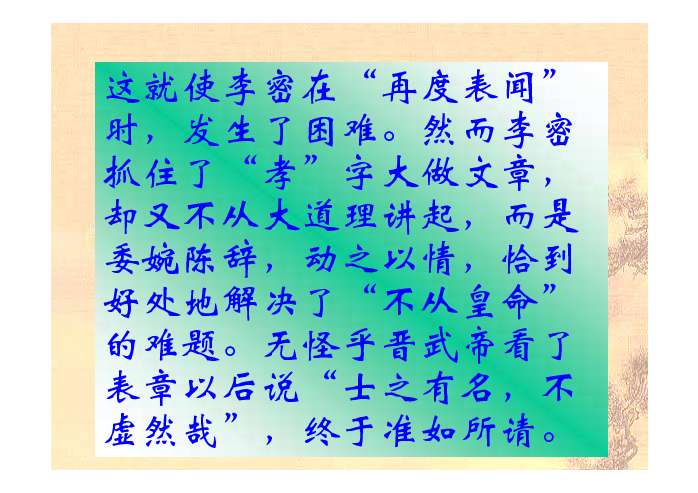 这就使李密在“再度表闻”
时，发生了困难。然而李密
抓住了“孝”字大做文章，
却又不从大道理讲起，而是
委婉陈辞，动之以情，恰到
好处地解决了“不从皇命”
的难题。无怪乎晋武帝看了
表章以后说“士之有名，不
虚然哉”，终于准如所请。